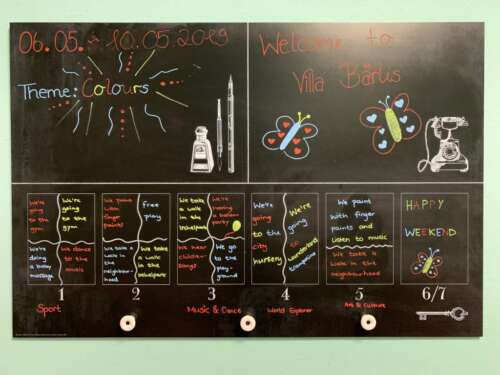 06.05. - 10.05.2019
Theme: Colours
Welcome to
Villa Bärlis
We're
going
to the
gym
We're
going
to the
gym
We're
doing
a body
massage
We dance
to the
music
1
Sport
We paint
with
finger
paints
free
play
We take a
walk in
the
neighbour-
hood
We take
a walk
in the
2
We take
a walk
in the
We're
having
a balloon
party
We hear
children-
songs
We go
to the
play-
ground
3
Music & Dance
We're
going
to the
city
nursery
We're
going
to
trampoline
4
World Explorer
We paint
with finger
paints and
listen to music
We take a
walk in the
neighbourhood
5
Art & Culture
HAPPY
WEEKEND
6/7